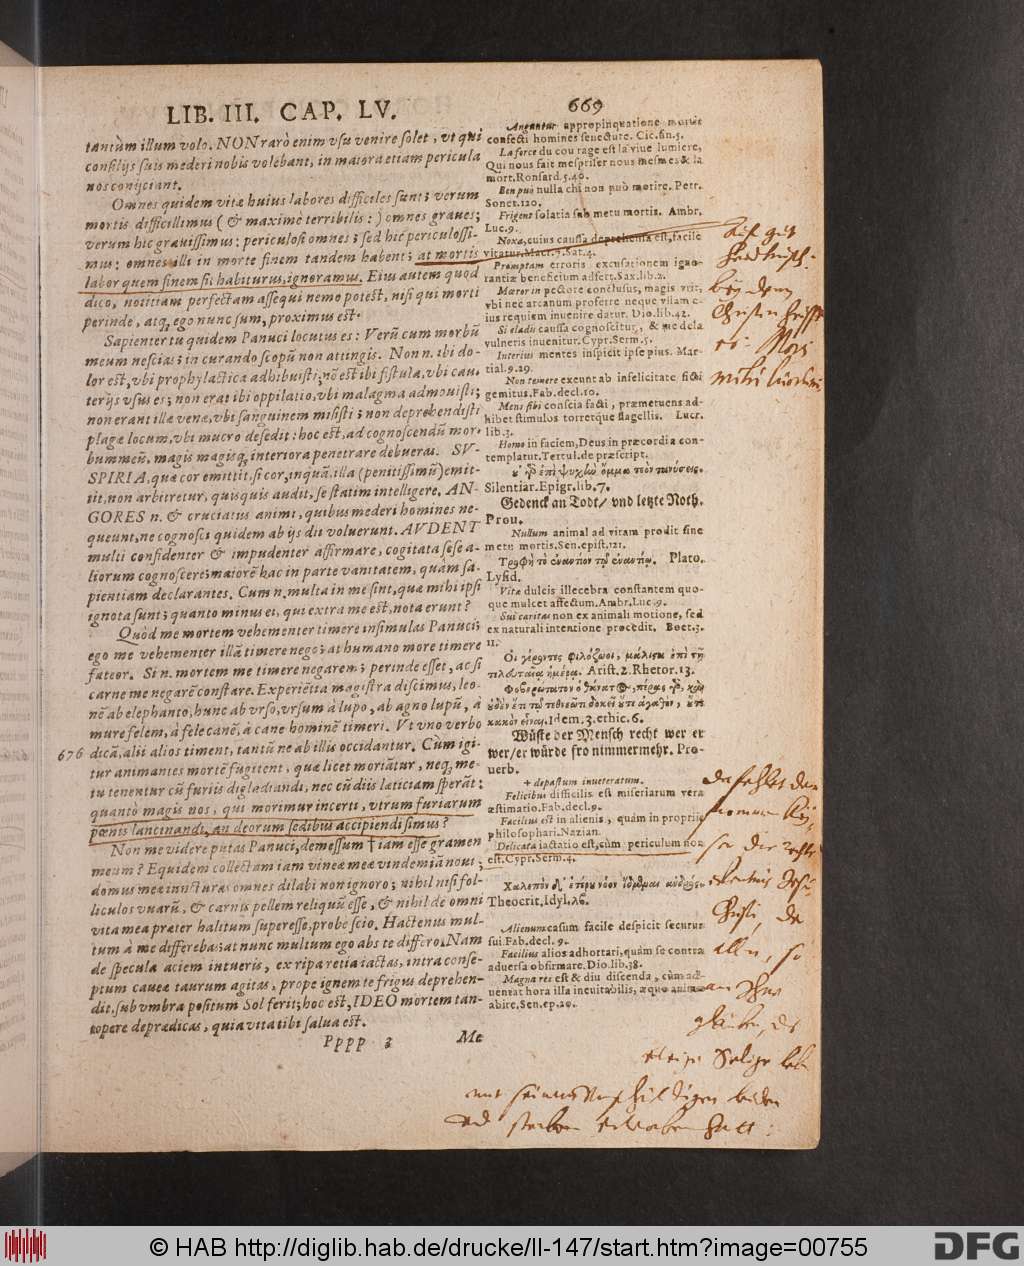 LIB. III. CAP. LV.
669
tantùm illum volo. NON rarò enim vsu venire solet, vt qui
consilijs suis mederi nobis volebant, in maiora etiam pericula
nos conijciant.
Omnes quidem vitæ huius labores difficiles sunt; verum
mortis difficillimus (& maximè terribilis:) omnes graues;
verum hic grauissimus: periculosi omnes; sed hic periculosissi-
mus: omnes illi in morte finem tandem habent; at mortis
labor quem finem sit habiturus, ignoramus. Eius autem quod
dico, notitiam perfectam assequi nemo potest, nisi qui morti
perinde, atq; ego nunc sum, proximus est.
Sapienter tu quidem Panuci locutus es: Verũ cum morbũ
meum nescias; in curando scopũ non attingis. Non n. ibi do-
lor est, vbi prophylactica adhibuisti; nõ est ibi fistula, vbi cau-
terijs vsus es; non erat ibi oppilatio, vbi malagma admouisti;
non erant illæ venæ, vbi sanguinem misisti; non deprehendisti
plagæ locum, vbi mucro desedit: hoc est, ad cognoscendũ mor-
bum meũ, magis magisq; interiora penetrare debueras. SV-
SPIRIA, quæ cor emittit, si cor, inquã, illa (penitissimũ) emit-
tit, non arbitretur, quisquis audit, se statim intelligere. AN-
GORES n. & cruciatus animi, quibus mederi homines ne-
queunt, ne cognosci quidem ab ijs dii voluerunt. AVDENT
multi confidenter & impudenter affirmare, cogitata sese a-
liorum cognoscere; maiorẽ hac in parte vanitatem, quàm sa-
pientiam declarantes. Cum n. multa in me sint, quæ mihi ipsi
ignota sunt; quanto minus ei, qui extra me est, nota erunt?
Quòd me mortem vehementer timere insimulas Panuci;
ego me vehementer illã timere nego; at humano more timere
fateor. Si n. mortem me timere negarem; perinde esset, ac si
carne me negarẽ constare. Experiẽtia magistra discimus, leo-
nẽ ab elephanto, hunc ab vrso, vrsum à lupo, ab agno lupũ, à
mure felem, à fele canẽ, à cane hominẽ timeri. Vt vno verbo
676
dicã, alii alios timent, tantũ ne ab illis occidantur. Cùm igi-
tur animantes mortẽ fugitent, quæ licet moriãtur, neq; me-
tu tenentur cũ furiis diglœdiandi, nec cũ diis lætitiam sperãt:
quantò magis nos, qui morimur incerti, vtrum furiarum
pœnis lancinandi, an deorum sedibus accipiendi simus?
Non me videre putas Panuci, demessum † iam esse gramen
meum? Equidem collectam iam vineæ meæ vindemiã noui;
domus meæ iuncturas omnes dilabi non ignoro; nihil nisi fol-
liculos vuarũ, & carnis pellem reliquũ esse, & nihil de omni
vita mea præter halitum superesse, probe scio. Hactenus mul-
tum à me differebas; at nunc multum ego abs te differo. Nam
de specula aciem intueris, ex ripa retia iactas, intra conse-
ptum caueæ taurum agitas, prope ignem te frigus deprehen-
dit, sub vmbra positum Sol ferit; hoc est, IDEO mortem tan-
topere deprædicas, quia vita tibi salua est.
Pppp 3
Me
Anguntur appropinquatione mortis
confecti homines senectute. Cic. fin. 5.
La force du courage est la viue lumiere,
Qui nous fait mespriser nous mesmes & la
mort. Ronsard. 5. 40.
Ben può nulla chi non può morire. Petr.
Sonet. 120.
Frigens solatia sub metu mortis. Ambr.
Luc. 9.
Noxa, cuius caussa deprehensa est, facile
vitatur. Macr. 7. Sat. 4.
Promptam erroris excusationem igno-
rantiæ beneficium adfert. Sax. lib. 2.
Mœror in pectore conclusus, magis vrit;
vbi nec arcanum proferre neque vllam e-
ius requiem inuenire datur. Dio. lib. 42.
Si cladis caussa cognoscitur, & medela
vulneris inuenitur. Cypr. Serm. 5.
Interius mentes inspicit ipse pius. Mar-
tial. 9. 29.
Non temere exeunt ab infelicitate ficti
gemitus. Fab. decl. 10.
Mens sibi conscia facti, præmetuens ad-
hibet stimulos torretque flagellis. Lucr.
lib. 3.
Homo in faciem, Deus in præcordia con-
templatur. Tertul. de præscript.
Silentiar. Epigr. lib. 7.
Gedenck an Todt / vnd letzte Noth.
Prou.
Nullum animal ad vitam prodit sine
metu mortis. Sen. epist. 121.
Τροφὴ τὸ ἐναντίον τῷ ἐναντίῳ. Plato.
Lysid.
Vitæ dulcis illecebra constantem quo-
que mulcet affectum. Ambr. Luc. 9.
Sui caritas non ex animali motione, sed
ex naturali intentione procedit. Boet. 3.
11.
Οἱ γέροντες φιλόζωοι, μάλιστα ἐπὶ τῇ
τελευταίᾳ ἡμέρᾳ. Arist. 2. Rhetor. 13.
Φοβερώτατον ὁ θάνατος, πέρας γὰρ, καὶ
οὐδὲν ἔτι τῷ τεθνεῶτι δοκεῖ οὔτε ἀγαθὸν, οὔτε
κακὸν εἶναι. Idem. 3. ethic. 6.
Wüste der Mensch recht wer er
wer / er würde fro nimmermehr. Pro-
uerb.
† depastum inueteratum.
Felicibus difficilis est miseriarum vera
æstimatio. Fab. decl. 9.
Facilius est in alienis, quàm in propriis
philosophari. Nazian.
Delicata iactatio est, cùm periculum non
est. Cypr. Serm. 4.
Theocrit. Idyl.
Alienum casum facile despicit securus
sui. Fab. decl. 9.
Facilius alios adhortari, quàm se contra
aduersa obfirmare. Dio. lib. 38.
Magna res est & diu discenda, cùm ad-
uentat hora illa ineuitabilis, æquo animo
abire. Sen. ep. 30.
bey dem
Mors
mihi
da fehlet dem
Christi, da
allen, so
glauben, das
© HAB http://diglib.hab.de/drucke/ll-147/start.htm?image=00755
DFG